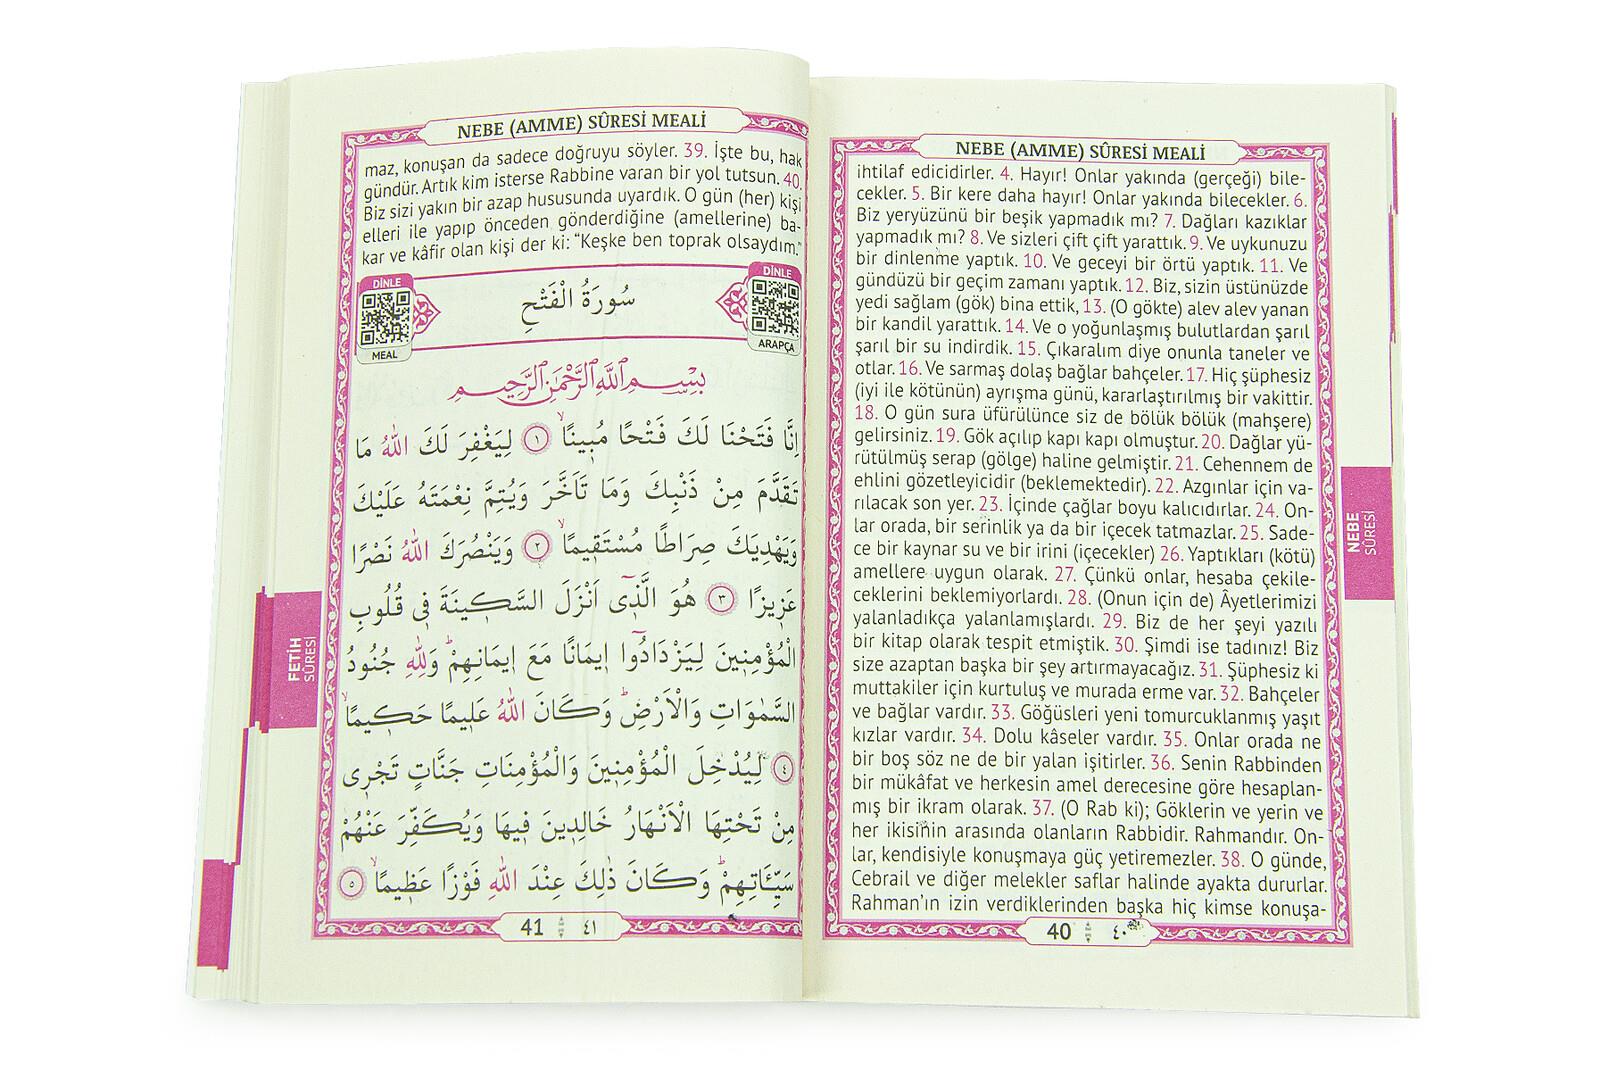 NEBE (AMME) SÛRESİ MEALİ
ihtilaf edicidirler. 4. Hayır! Onlar yakında (gerçeği) bile-
cekler. 5. Bir kere daha hayır! Onlar yakında bilecekler. 6.
Biz yeryüzünü bir beşik yapmadık mı? 7. Dağları kazıklar
yapmadık mı? 8. Ve sizleri çift çift yarattık. 9. Ve uykunuzu
bir dinlenme yaptık. 10. Ve geceyi bir örtü yaptık. 11. Ve
gündüzü bir geçim zamanı yaptık. 12. Biz, sizin üstünüzde
yedi sağlam (gök) bina ettik, 13. (O gökte) alev alev yanan
bir kandil yarattık. 14. Ve o yoğunlaşmış bulutlardan şarıl
şarıl bir su indirdik. 15. Çıkaralım diye onunla taneler ve
otlar. 16. Ve sarmaş dolaş bağlar bahçeler. 17. Hiç şüphesiz
(iyi ile kötünün) ayrışma günü, kararlaştırılmış bir vakittir.
18. O gün sura üfürülünce siz de bölük bölük (mahşere)
gelirsiniz. 19. Gök açılıp kapı kapı olmuştur. 20. Dağlar yü-
rütülmüş serap (gölge) haline gelmiştir. 21. Cehennem de
ehlini gözetleyicidir (beklemektedir). 22. Azgınlar için va-
rılacak son yer. 23. İçinde çağlar boyu kalıcıdırlar. 24. On-
lar orada, bir serinlik ya da bir içecek tatmazlar. 25. Sade-
ce bir kaynar su ve bir irini (içecekler) 26. Yaptıkları (kötü)
amellere uygun olarak. 27. Çünkü onlar, hesaba çekile-
ceklerini beklemiyorlardı. 28. (Onun için de) Âyetlerimizi
yalanladıkça yalanlamışlardı. 29. Biz de her şeyi yazılı
bir kitap olarak tespit etmiştik. 30. Şimdi ise tadınız! Biz
size azaptan başka bir şey artırmayacağız. 31. Şüphesiz ki
muttakiler için kurtuluş ve murada erme var. 32. Bahçeler
ve bağlar vardır. 33. Göğüsleri yeni tomurcuklanmış yaşıt
kızlar vardır. 34. Dolu kâseler vardır. 35. Onlar orada ne
bir boş söz ne de bir yalan işitirler. 36. Senin Rabbinden
bir mükâfat ve herkesin amel derecesine göre hesaplan-
mış bir ikram olarak. 37. (O Rab ki); Göklerin ve yerin ve
her ikisinin arasında olanların Rabbidir. Rahmandır. On-
lar, kendisiyle konuşmaya güç yetiremezler. 38. O günde,
Cebrail ve diğer melekler saflar halinde ayakta dururlar.
Rahman'ın izin verdiklerinden başka hiç kimse konuşa-
40 ٤٠
NEBE
SÛRESİ
NEBE (AMME) SÛRESİ MEALİ
maz, konuşan da sadece doğruyu söyler. 39. İşte bu, hak
gündür. Artık kim isterse Rabbine varan bir yol tutsun. 40.
Biz sizi yakın bir azap hususunda uyardık. O gün (her) kişi
elleri ile yapıp önceden gönderdiğine (amellerine) ba-
kar ve kâfir olan kişi der ki: "Keşke ben toprak olsaydım."
DİNLE
MEAL
سُورَةُ الْفَتْحِ
DİNLE
ARAPÇA
بِسْمِ اللّٰهِ الرَّحْمٰنِ الرَّحِيمِ
اِنَّا فَتَحْنَا لَكَ فَتْحًا مُبِينًاۙ ﴿١﴾ لِيَغْفِرَ لَكَ اللّٰهُ مَا
تَقَدَّمَ مِنْ ذَنْبِكَ وَمَا تَاَخَّرَ وَيُتِمَّ نِعْمَتَهُ عَلَيْكَ
وَيَهْدِيَكَ صِرَاطًا مُسْتَقِيمًاۙ ﴿٢﴾ وَيَنْصُرَكَ اللّٰهُ نَصْرًا
عَزِيزًا ﴿٣﴾ هُوَ الَّذِٓى اَنْزَلَ السَّكِينَةَ فِى قُلُوبِ
الْمُؤْمِنِينَ لِيَزْدَادُٓوا اِيمَانًا مَعَ اِيمَانِهِمْۜ وَلِلّٰهِ جُنُودُ
السَّمٰوَاتِ وَالْاَرْضِۜ وَكَانَ اللّٰهُ عَلِيمًا حَكِيمًاۙ
﴿٤﴾ لِيُدْخِلَ الْمُؤْمِنِينَ وَالْمُؤْمِنَاتِ جَنَّاتٍ تَجْرِى
مِنْ تَحْتِهَا الْاَنْهَارُ خَالِدِينَ فِيهَا وَيُكَفِّرَ عَنْهُمْ
سَيِّـَٔاتِهِمْۜ وَكَانَ ذٰلِكَ عِنْدَ اللّٰهِ فَوْزًا عَظِيمًاۙ ﴿٥﴾
41 ٤١
FETİH
SÛRESİ